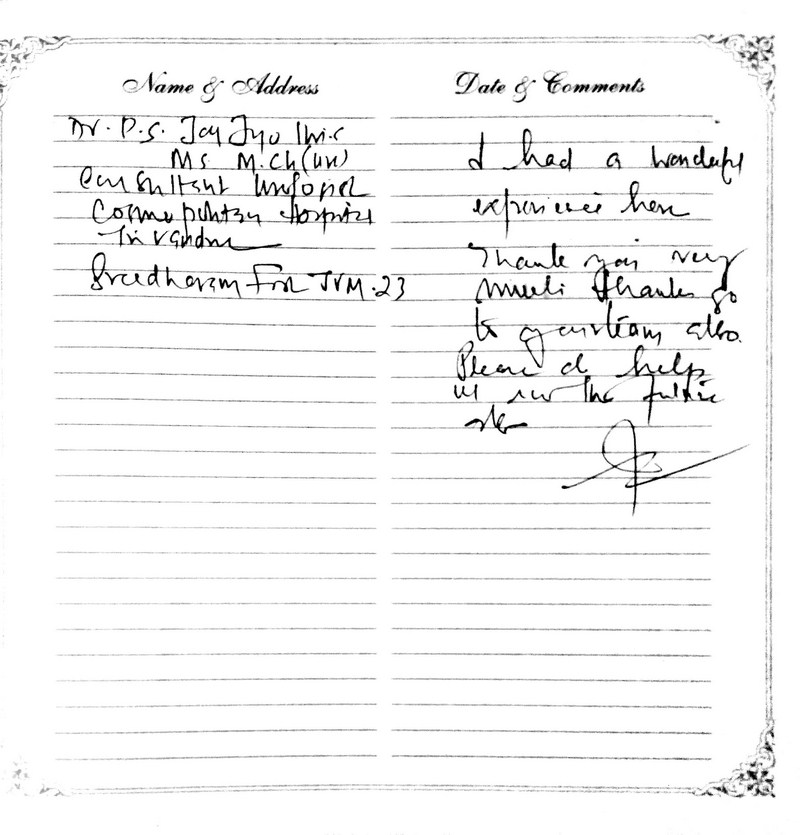 Name & Address
Dr. P.S.
MS M.Ch (Uro)
Consultant Urologist
Cosmopolitan Hospital
Trivandrum
TVM.23
Date & Comments
I had a wonderful
experience here
Thank you very
much thanks go
to your team also.
Please do help
us in the future
also